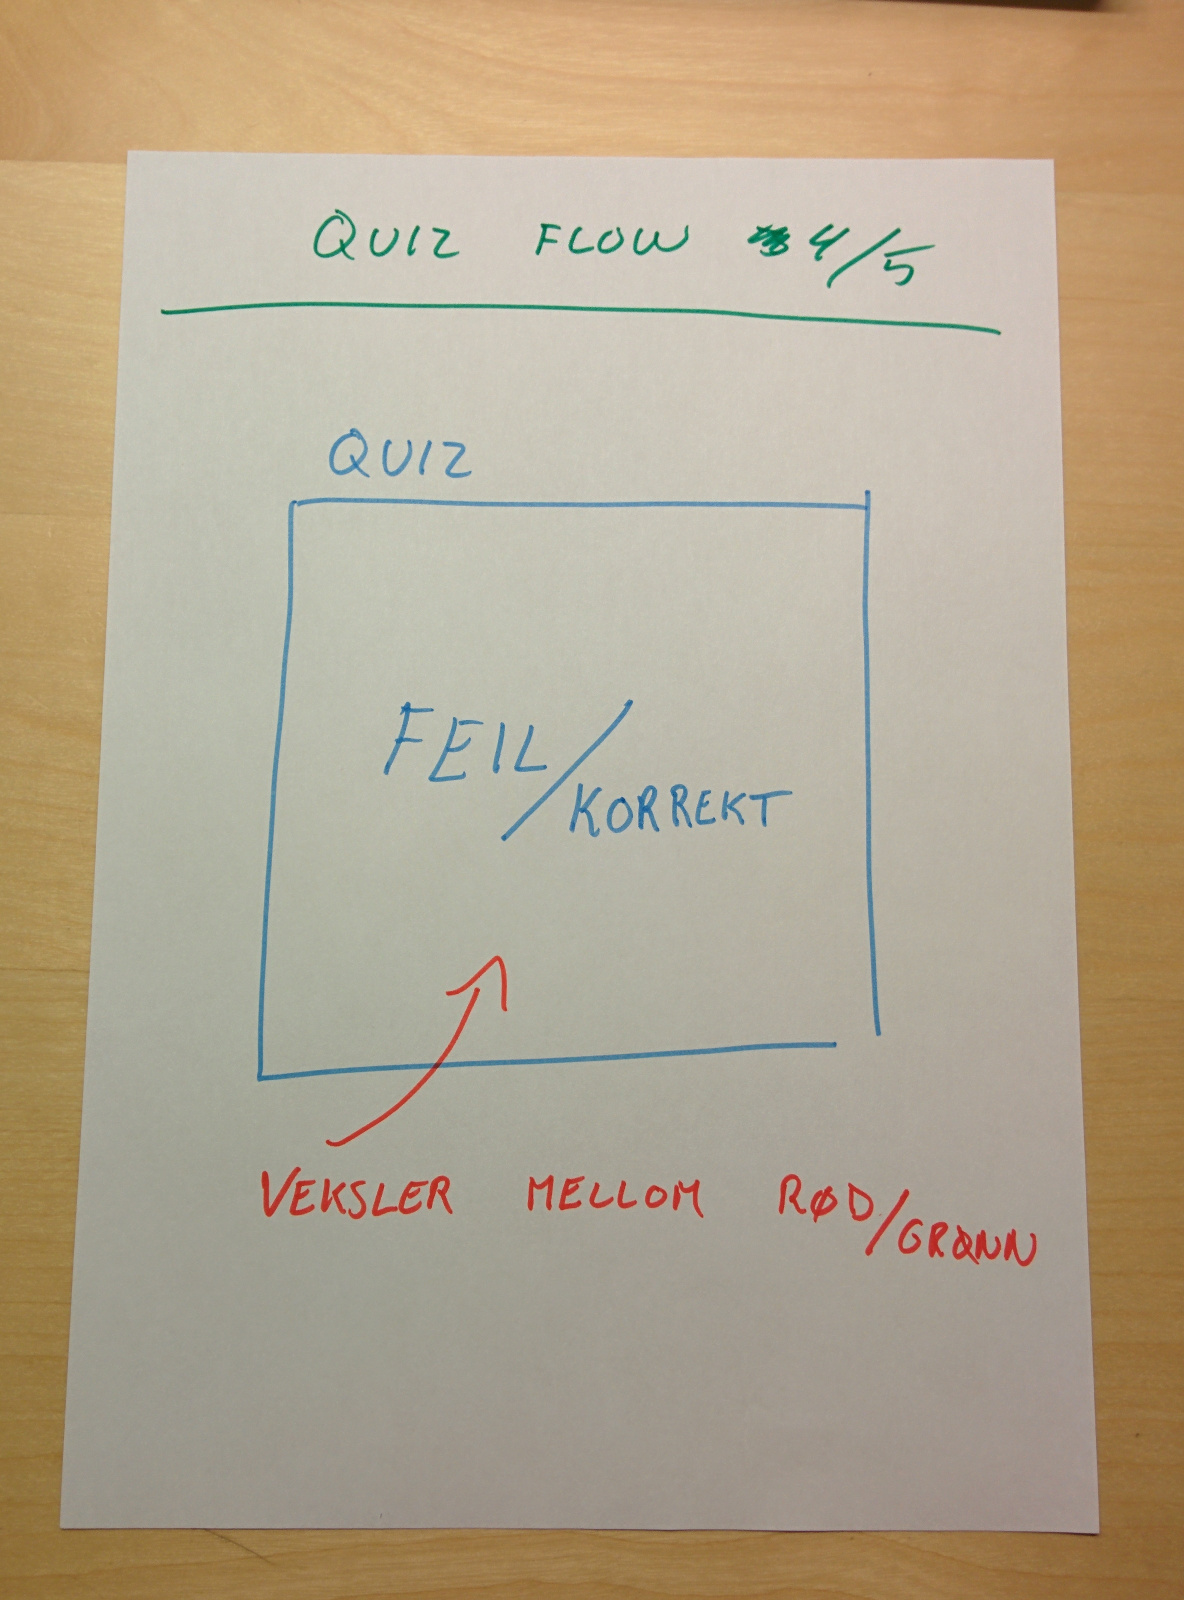 QUIZ FLOW 4/5
QUIZ
FEIL/KORREKT
VEKSLER MELLOM RØD/GRØNN